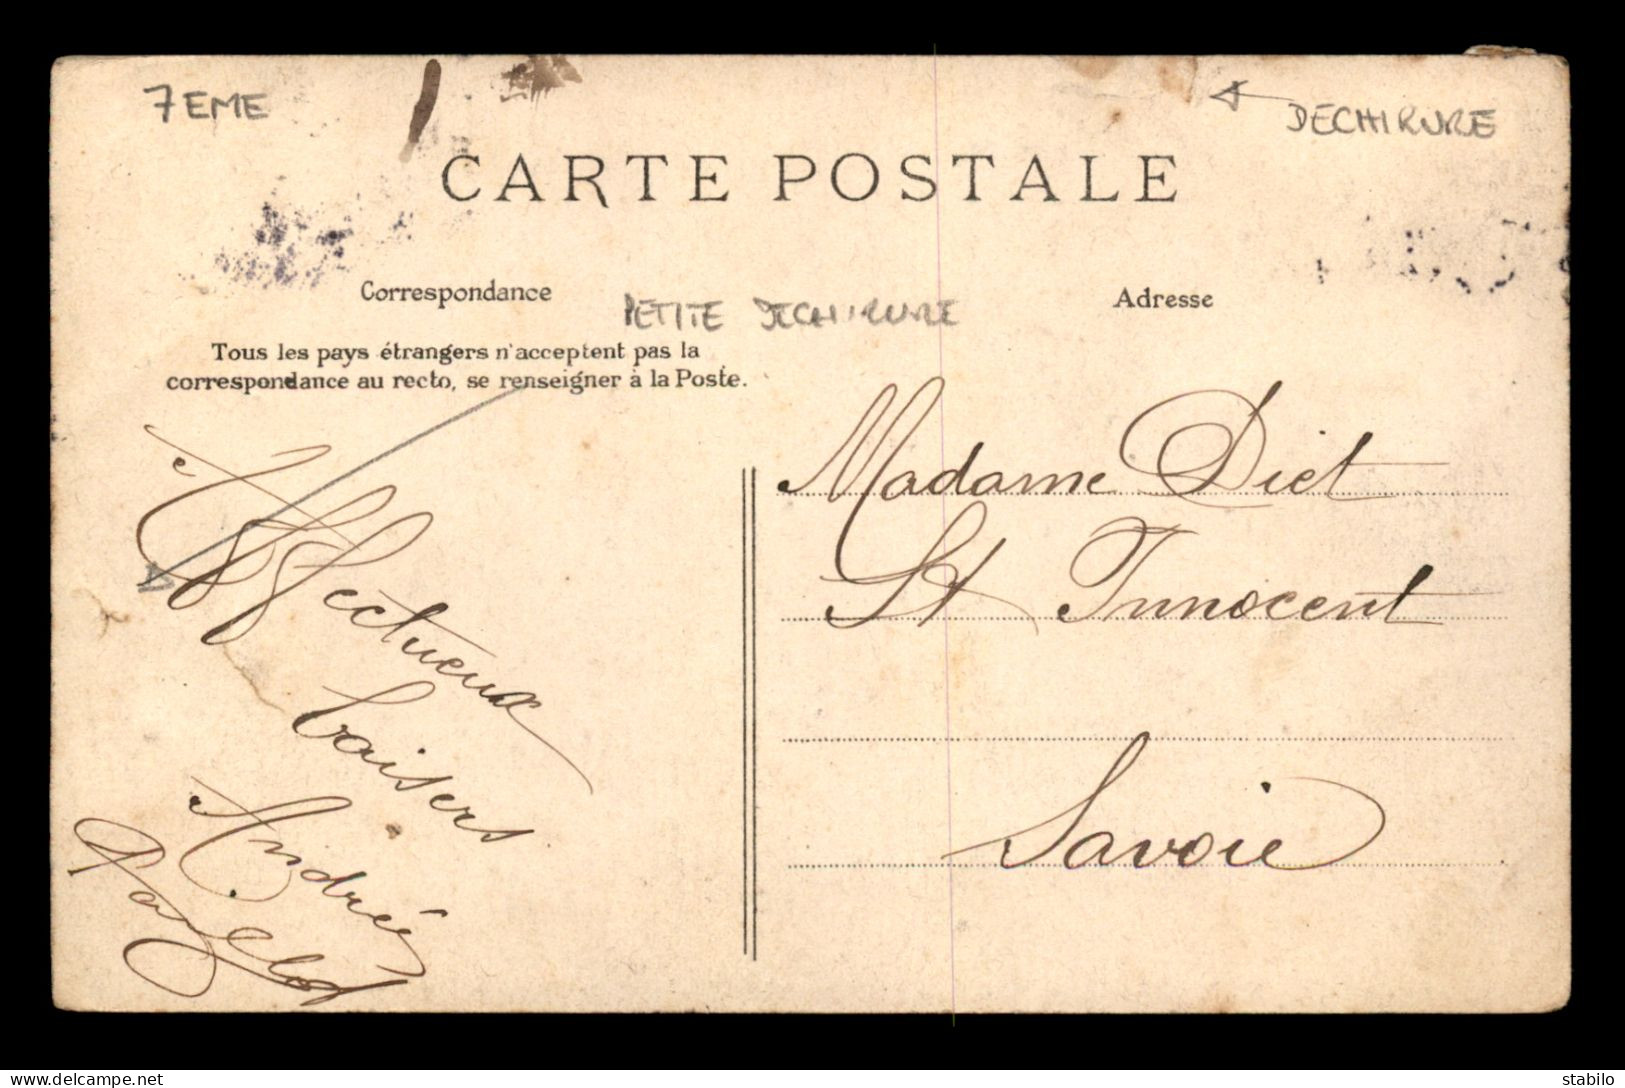 7EME
DECHIRURE
CARTE POSTALE
Correspondance
Adresse
PETITE DECHIRURE
Tous les pays étrangers n'acceptent pas la
correspondance au recto, se renseigner à la Poste.
Affectueux
baisers
Andrée
Madame Diet
St Innocent
Savoie
delcampe.net
stabilo